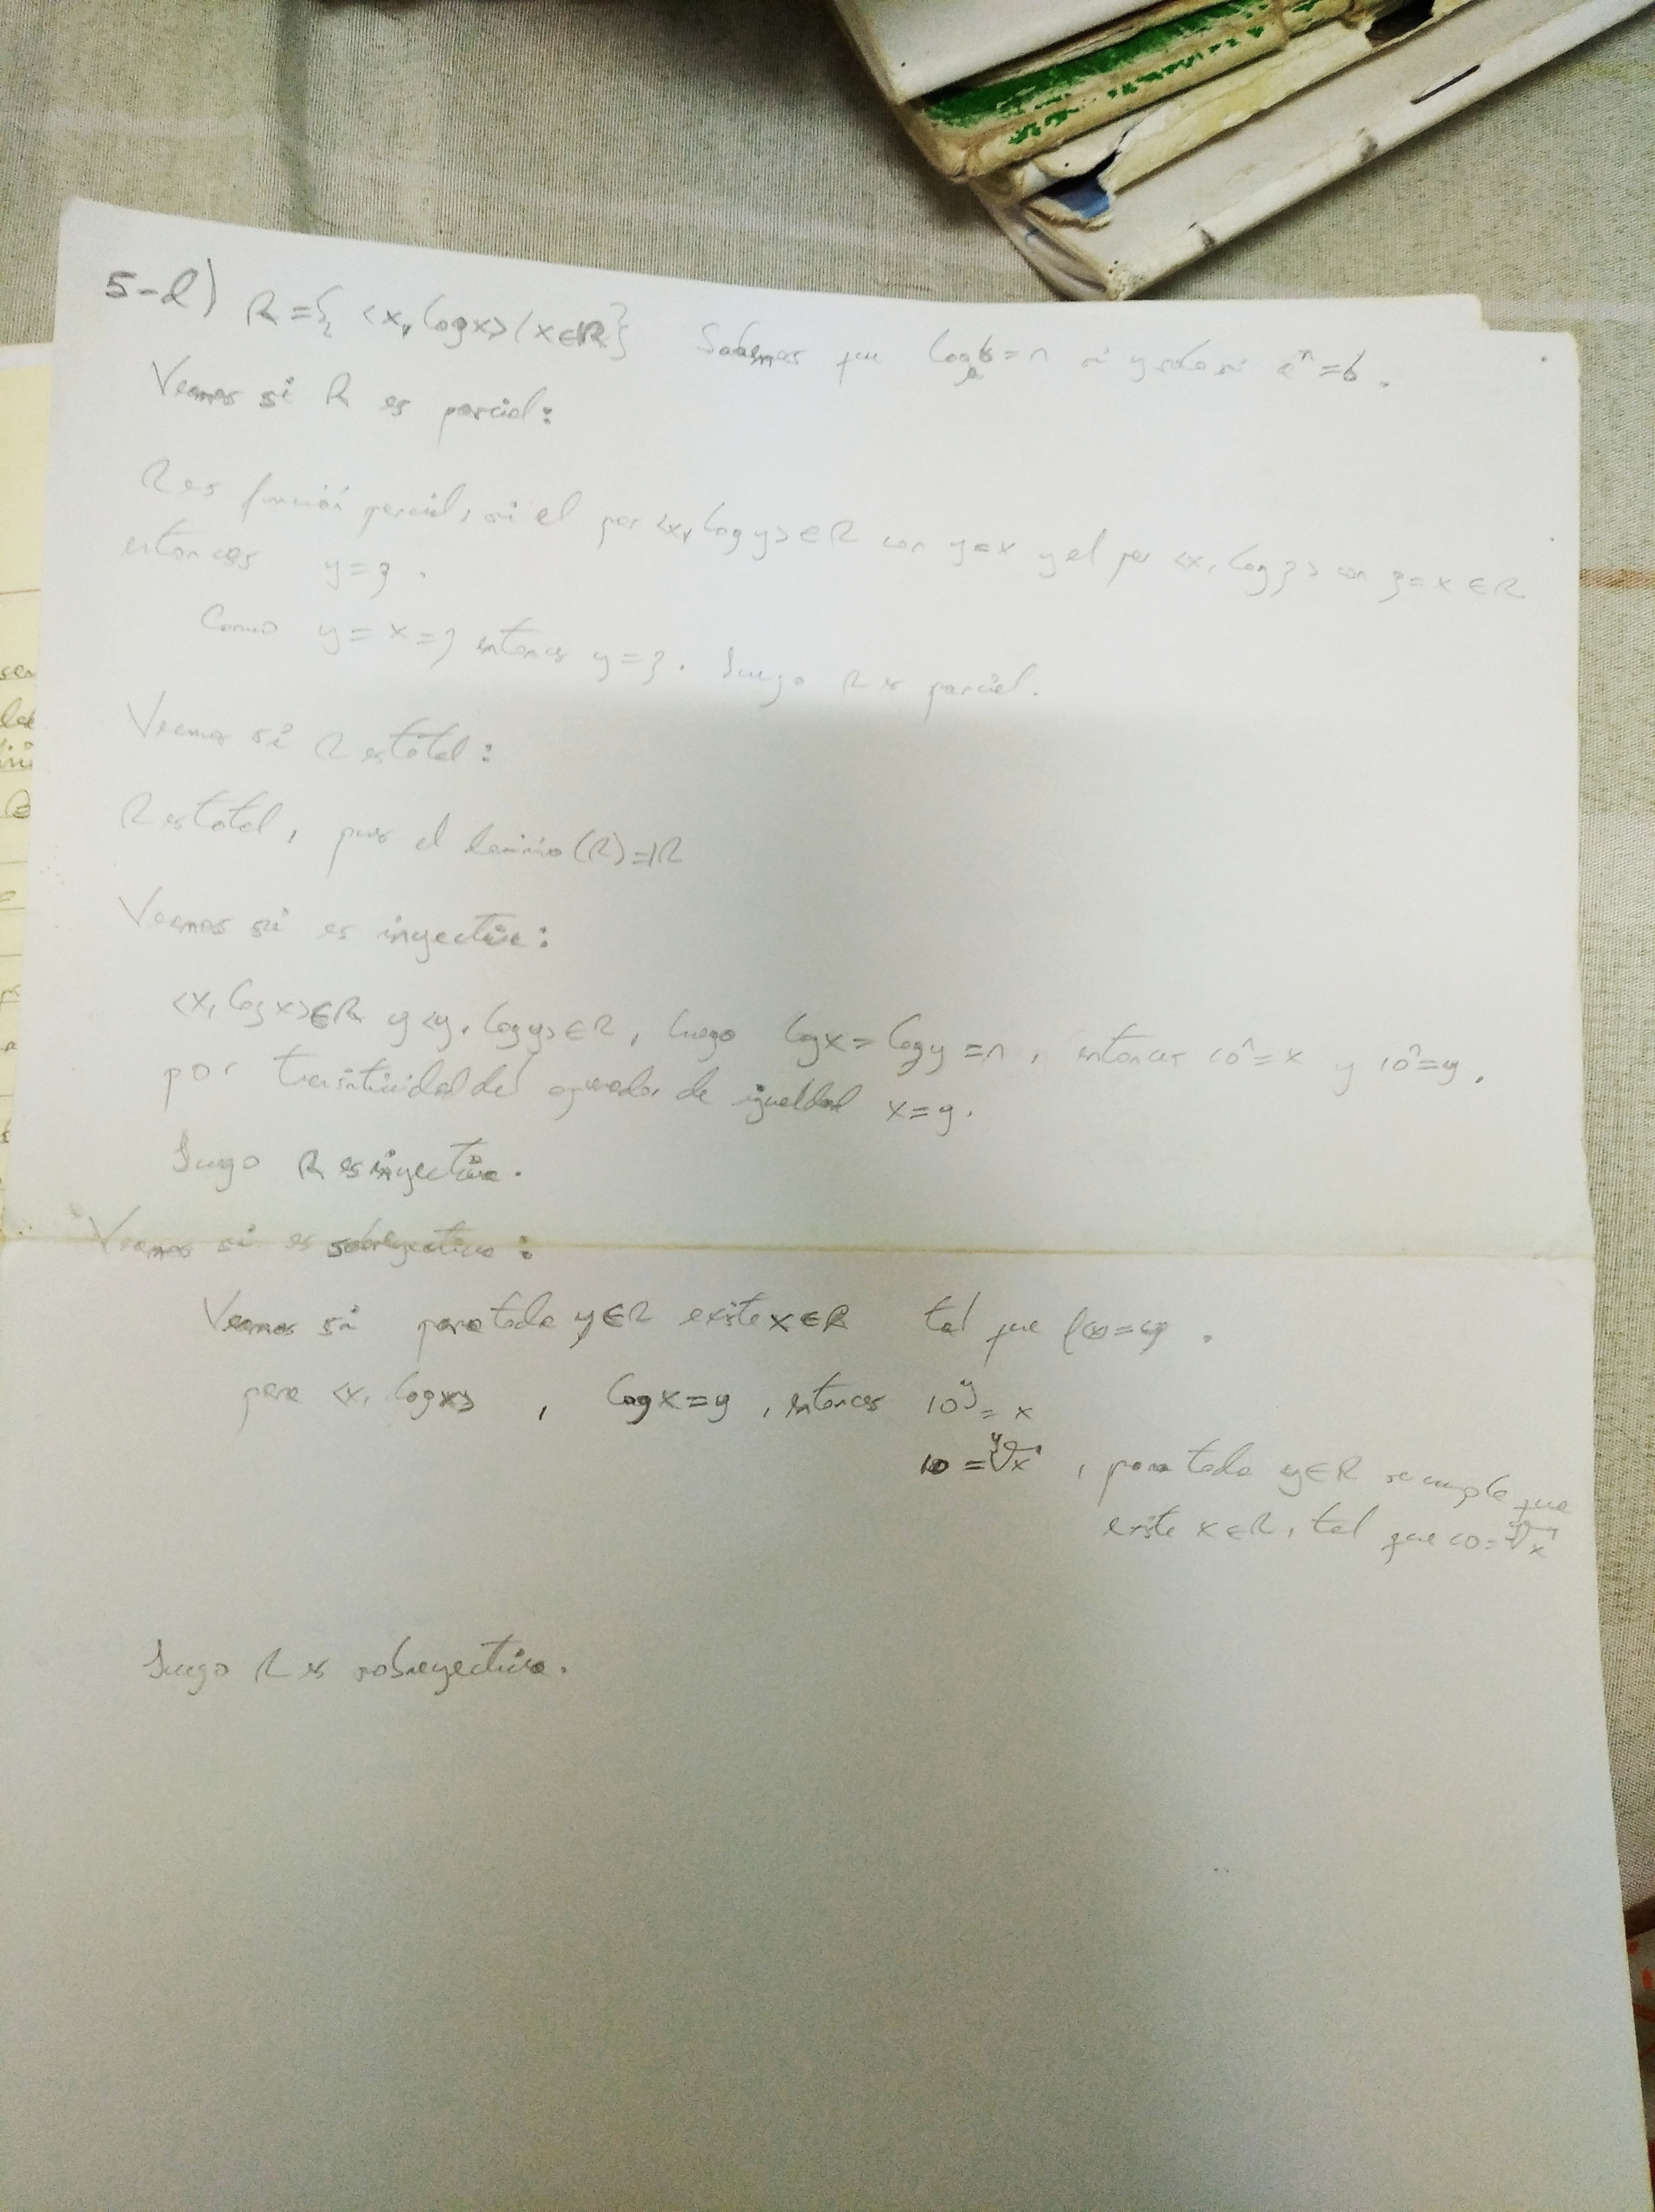 5-d) R = { <x, log x> / x ∈ ℝ } Sabemos que logₐb = n si y solo si aⁿ = b.
Veamos si R es parcial:
R es función parcial, si el par <x, log y> ∈ R con y = x y el par <x, log z> con z = x ∈ R
entonces y = z.
Como y = x = z entonces y = z. Luego R es parcial.
Veamos si R es total:
R es total, pues el dominio (R) = ℝ
Veamos si es inyectiva:
<x, log x> ∈ R y <y, log y> ∈ R, luego log x = log y = n, entonces 10ⁿ = x y 10ⁿ = y,
por transitividad del operador de igualdad x = y.
Luego R es inyectiva.
Veamos si es sobreyectiva:
Veamos si para todo y ∈ R existe x ∈ R tal que f(x) = y.
para <x, log x>, log x = y, entonces 10^y = x
10 = ʸ√x, para todo y ∈ R se cumple que
existe x ∈ R, tal que 10 = ʸ√x
Luego R es sobreyectiva.